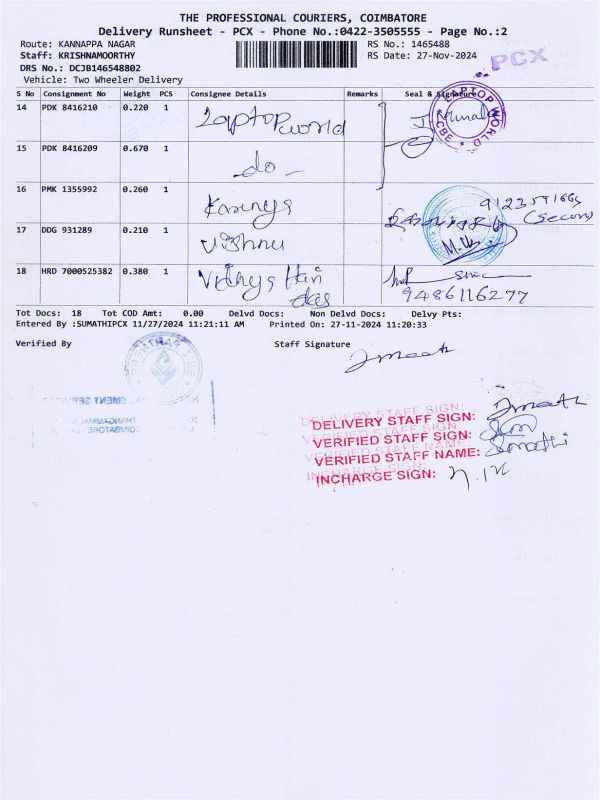 THE PROFESSIONAL COURIERS, COIMBATORE
Delivery Runsheet - PCX - Phone No.:0422-3505555 - Page No.:2
Route: KANNAPPA NAGAR RS No.: 1465488
Staff: KRISHNAMOORTHY RS Date: 27-Nov-2024
PCX
DRS No.: DCJB146548802
Vehicle: Two Wheeler Delivery
S No Consignment No Weight PCS Consignee Details Remarks Seal & Signature
14 PDK 8416210 0.220 1 Laptop world
LAPTOP WORLD CBE
15 PDK 8416209 0.670 1 - do -
16 PMK 1355992 0.260 1 Karunya
(Secon)
17 DDG 931289 0.210 1 Vishnu
18 HRD 7000525382 0.380 1 Vidhya Hari das
9486116277
Tot Docs: 18 Tot COD Amt: 0.00 Delvd Docs: Non Delvd Docs: Delvy Pts:
Entered By :SUMATHIPCX 11/27/2024 11:21:11 AM Printed On: 27-11-2024 11:20:33
Verified By Staff Signature
DELIVERY STAFF SIGN:
VERIFIED STAFF SIGN:
VERIFIED STAFF NAME: Sumathi
INCHARGE SIGN: